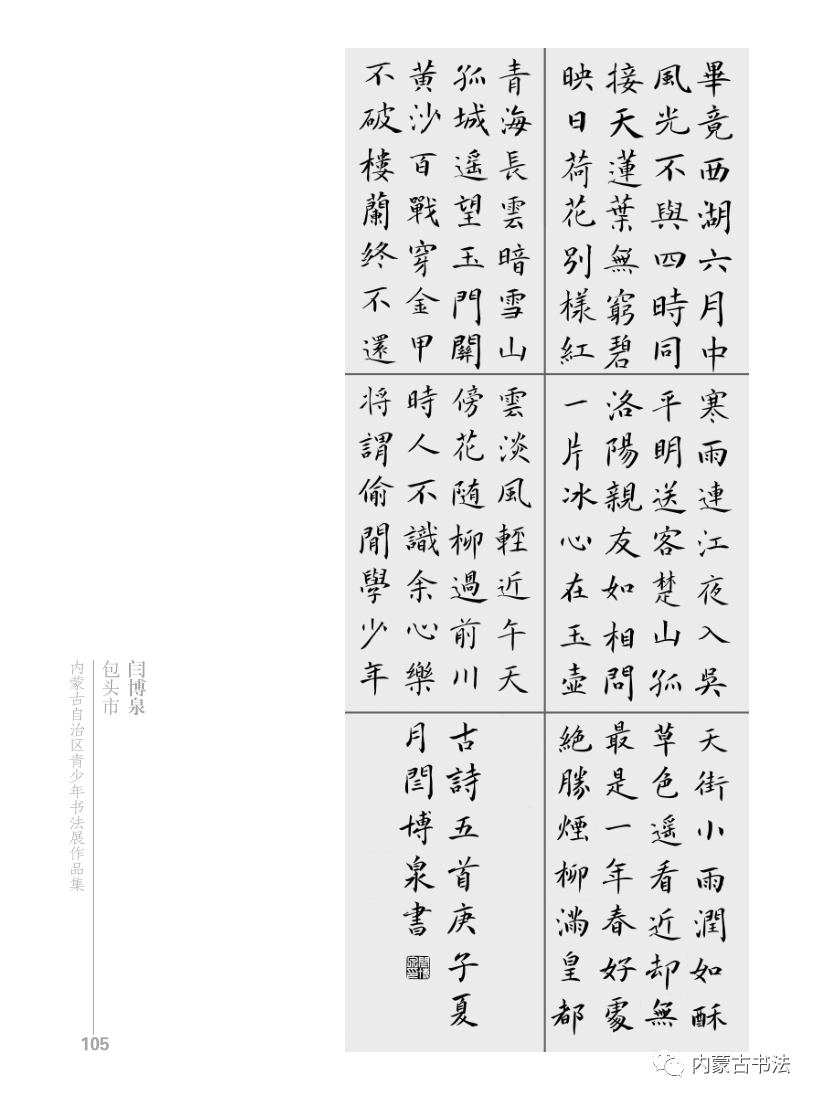 畢竟西湖六月中
風光不與四時同
接天蓮葉無窮碧
映日荷花別樣紅
寒雨連江夜入吳
平明送客楚山孤
洛陽親友如相問
一片冰心在玉壺
天街小雨潤如酥
草色遥看近却無
最是一年春好處
絶勝煙柳滿皇都
青海長雲暗雪山
孤城遥望玉門關
黄沙百戰穿金甲
不破樓蘭终不還
雲淡風輕近午天
傍花随柳過前川
時人不識余心樂
将謂偷閒學少年
古詩五首庚子夏
月閆博泉書
闫博泉
包头市
内蒙古自治区青少年书法展作品集
105
内蒙古书法